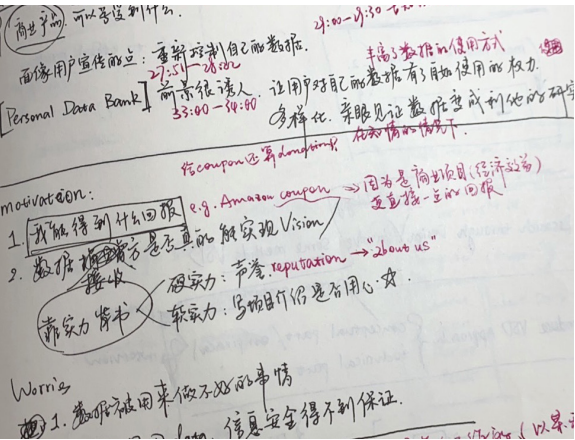 商业产品 可以学没到什么.
29:00-29:30
面像用户宣传的点: 重新控制自己的数据.
丰富了数据的使用方式
27:51-28:02
[Personal Data Bank] 前景很诱人. 让用户对自己的数据有了自如使用的权力.
33:00-34:00
多样化. 亲眼见证数据变成利他的研究
在知情的情况下.
给coupon还算donation吗
motivation:
1. 我能得到什么回报 e.g. Amazon coupon → 因为是商业项目(经济效益)
更直接一点的回报
2. 数据 方是否真的能实现Vision
接收
靠实力背书
硬实力: 声誉 reputation → "about us"
软实力: 与项目介绍是否用心. ☆.
Worries
1. 数据被用来做不好的事情
信息安全得不到保证.